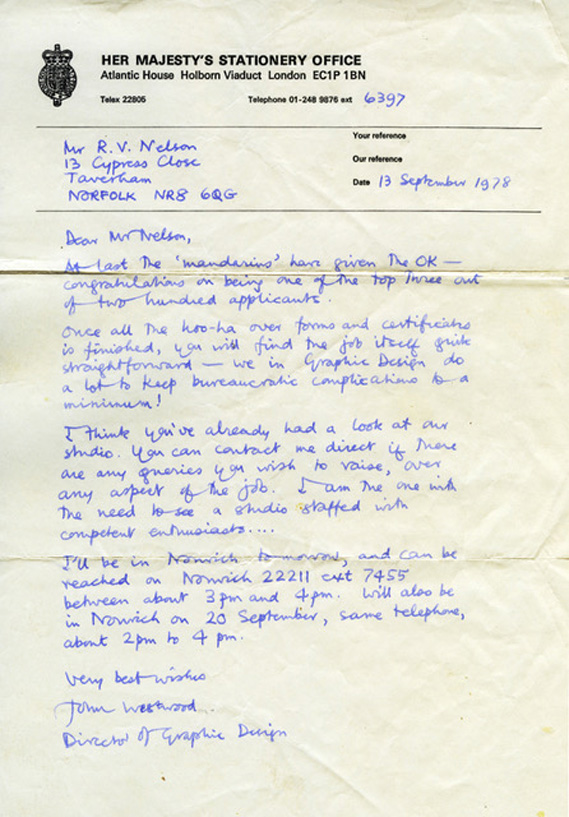 HER MAJESTY'S STATIONERY OFFICE
Atlantic House Holborn Viaduct London EC1P 1BN
Telex 22805 Telephone 01-248 9876 ext 6397
Mr R. V. Nelson
13 Cypress Close
Taverham
NORFOLK NR8 6QG
Your reference
Our reference
Date 13 September 1978
Dear Mr Nelson,
At last the 'mandarins' have given the OK —
congratulations on being one of the top three out
of two hundred applicants.
Once all the hoo-ha over forms and certificates
is finished, you will find the job itself quite
straightforward — we in Graphic Design do
a lot to keep bureaucratic complications to a
minimum!
I think you've already had a look at our
studio. You can contact me direct if there
are any queries you wish to raise, over
any aspect of the job. I am the one with
the need to see a studio staffed with
competent enthusiasts....
I'll be in Norwich tomorrow, and can be
reached on Norwich 22211 ext 7455
between about 3pm and 4pm. Will also be
in Norwich on 20 September, same telephone,
about 2pm to 4 pm.
Very best wishes
John Westwood.
Director of Graphic Design